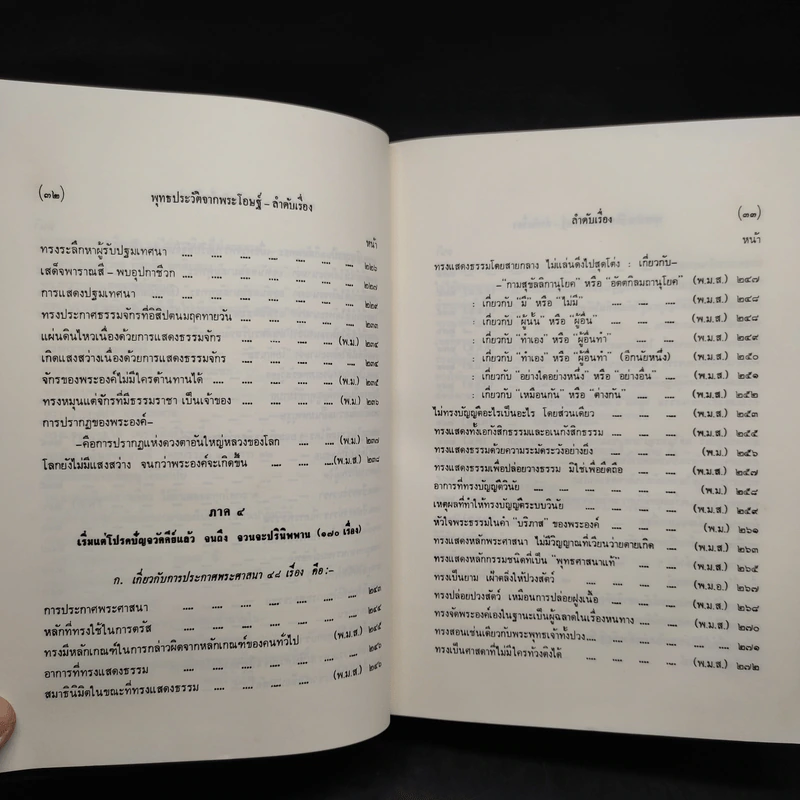 (๓๒)
พุทธประวัติจากพระโอษฐ์ – ลำดับเรื่อง
หน้า
ทรงระลึกหาผู้รับปฐมเทศนา .... .... .... .... .... ๒๒๖
เสด็จพาราณสี – พบอุปกาชีวก .... .... .... .... ๒๒๗
การแสดงปฐมเทศนา .... .... .... .... .... ๒๒๙
ทรงประกาศธรรมจักรที่อิสิปตนมฤคทายวัน .... .... .... ๒๓๓
แผ่นดินไหวเนื่องด้วยการแสดงธรรมจักร .... .... (พ.ม.) ๒๓๔
เกิดแสงสว่างเนื่องด้วยการแสดงธรรมจักร .... .... .... ๒๓๔
จักรของพระองค์ไม่มีใครต้านทานได้ .... .... .... (พ.ม.) ๒๓๕
ทรงหมุนแต่จักรที่มีธรรมราชา เป็นเจ้าของ .... .... (พ.ม.) ๒๓๖
การปรากฏของพระองค์–
–คือการปรากฏแห่งดวงตาอันใหญ่หลวงของโลก .... (พ.ม.) ๒๓๗
โลกยังไม่มีแสงสว่าง จนกว่าพระองค์จะเกิดขึ้น .... .... ....(พ.ม.ส.) ๒๓๘
ภาค ๔
เริ่มแต่โปรดปัญจวัคคีย์แล้ว จนถึง จวนจะปรินิพพาน (๑๗๐ เรื่อง)
ก. เกี่ยวกับการประกาศพระศาสนา ๔๘ เรื่อง คือ :–
การประกาศพระศาสนา .... .... .... .... .... ๒๔๓
หลักที่ทรงใช้ในการตรัส .... .... .... .... .... ๒๔๔
ทรงมีหลักเกณฑ์ในการกล่าวผิดจากหลักเกณฑ์ของคนทั่วไป (พ.ม.ส.) ๒๔๕
อาการที่ทรงแสดงธรรม .... .... .... .... .... ๒๔๖
สมาธินิมิตในขณะที่ทรงแสดงธรรม .... .... .... .... (พ.ม.ส.) ๒๔๖
ลำดับเรื่อง
(๓๓)
หน้า
ทรงแสดงธรรมโดยสายกลาง ไม่แล่นดิ่งไปสุดโต่ง : เกี่ยวกับ–
–"กามสุขัลลิกานุโยค" หรือ "อัตตกิลมถานุโยค" (พ.ม.ส.) ๒๔๗
: เกี่ยวกับ "มี" หรือ "ไม่มี" .... .... .... (พ.ม.ส.) ๒๔๘
: เกี่ยวกับ "ผู้นั้น" หรือ "ผู้อื่น" .... .... .... (พ.ม.ส.) ๒๔๘
: เกี่ยวกับ "ทำเอง" หรือ "ผู้อื่นทำ" .... .... (พ.ม.ส.) ๒๔๙
: เกี่ยวกับ "ทำเอง" หรือ "ผู้อื่นทำ" (อีกนัยหนึ่ง) .... (พ.ม.ส.) ๒๕๐
: เกี่ยวกับ "อย่างใดอย่างหนึ่ง" หรือ "อย่างอื่น" .... (พ.ม.ส.) ๒๕๑
: เกี่ยวกับ "เหมือนกัน" หรือ "ต่างกัน" .... .... (พ.ม.ส.) ๒๕๒
ไม่ทรงบัญญัติอะไรเป็นอะไร โดยส่วนเดียว .... .... .... (พ.ม.ส.) ๒๕๓
ทรงแสดงทั้งเอกังสิกธรรมและอเนกังสิกธรรม .... .... (พ.ม.ส.) ๒๕๕
ทรงแสดงธรรมด้วยความระมัดระวังอย่างยิ่ง .... .... (พ.ม.) ๒๕๖
ทรงแสดงธรรมเพื่อปล่อยวางธรรม มิใช่เพื่อยึดถือ .... .... (พ.ม.ส.) ๒๕๗
อาการที่ทรงบัญญัติวินัย .... .... .... .... .... (พ.ม.) ๒๕๘
เหตุผลที่ทำให้ทรงบัญญัติระบบวินัย .... .... .... (พ.ม.ส.) ๒๕๙
หัวใจพระธรรมในคำ "บริภาส" ของพระองค์ .... .... (พ.ม.) ๒๖๑
ทรงแสดงหลักพระศาสนา ไม่มีวิญญาณที่เวียนว่ายตายเกิด .... (พ.ม.ส.) ๒๖๓
ทรงแสดงหลักกรรมชนิดที่เป็น "พุทธศาสนาแท้" .... .... (พ.ม.ส.) ๒๖๕
ทรงเป็นยาม เฝ้าตลิ่งให้ปวงสัตว์ .... .... .... (พ.ม.อ.) ๒๖๗
ทรงปล่อยปวงสัตว์ เหมือนการปล่อยฝูงเนื้อ .... .... .... (พ.ม.ส.) ๒๖๘
ทรงจัดพระองค์เองในฐานะเป็นผู้ฉลาดในเรื่องหนทาง .... .... (พ.ม.ส.) ๒๗๐
ทรงสอนเช่นเดียวกับพระพุทธเจ้าทั้งปวง.... .... .... .... ๒๗๑
ทรงเป็นศาสดาที่ไม่มีใครท้วงติงได้ .... .... .... .... (พ.ม.ส.) ๒๗๒